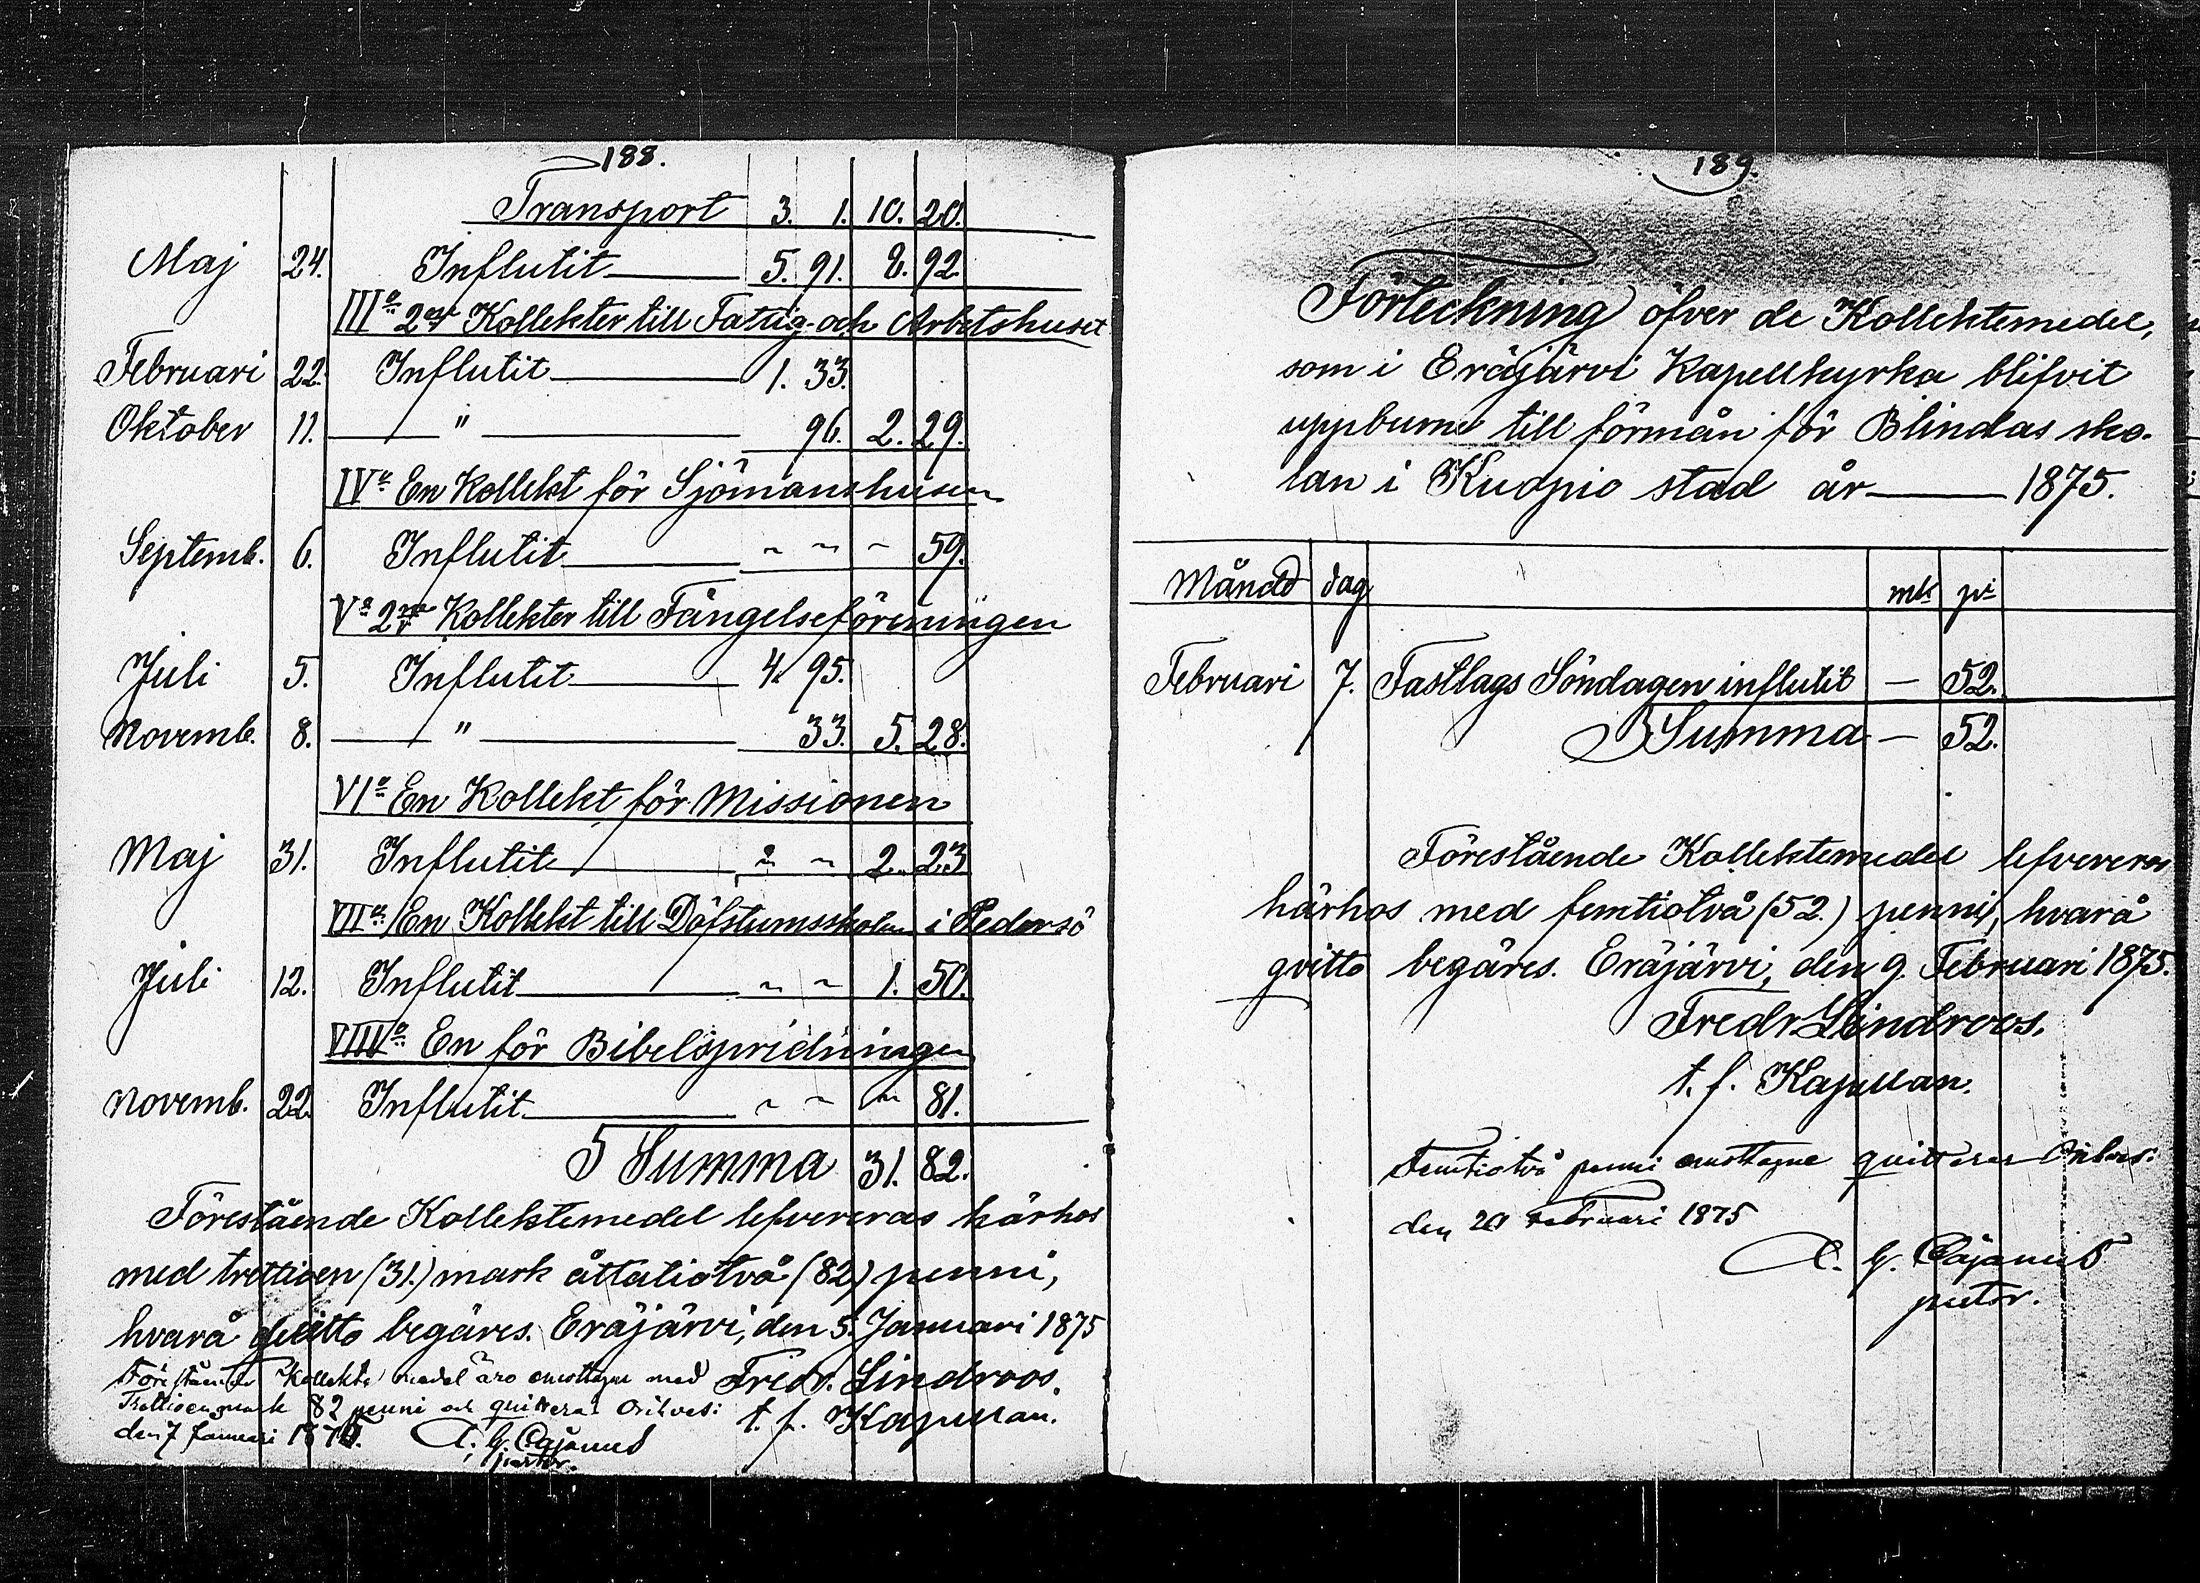 188.
Transport 3. 1. 10. 20.
Maj 24. Influtit 5. 91. 8. 92
III:o 2:ne Kollekter till Fattig- och Arbetshuset
Februari 22. Influtit 1. 33.
Oktober 11. " 96. 2. 29.
IV:o En Kollekt för Sjömanshusen
Septemb. 6. Influtit ~ ~ ~ 59.
V:o 2:ne Kollekter till Fängelseföreningen
Juli 5. Influtit 4. 95.
Novemb. 8. " 33. 5. 28.
VI:o En Kollekt för Missionen
Maj 31. Influtit ~ ~ 2. 23
VII:o En Kollekt till Döfstumsskolan i Pedersö
Juli 12. Influtit ~ ~ 1. 50.
VIII:o En för Bibelspridningen
Novemb. 22. Influtit ~ ~ ~ 81.
Summa 31. 82.
Förestående Kollektemedel lefvereras härhos
med trettioen (31.) mark åttatiotvå (82) penni,
hvarå qvitto begäres. Eräjärvi, den 5. Januari 1875
Fredr. Lindroos.
t. f. Kapellan.
Förestående Kollekte medel äro emottagne med
Trettioen mark 82 penni och quitteras Orihvesi
den 7 Januari 1875.
A. G. Cajanus
pastor.
189.
Förteckning öfver de Kollektemedel,
som i Eräjärvi Kapellkyrka blifvit
uppburne till förmån för Blindas sko-
lan i Kuopio stad år 1875.
Månad dag mk pi
Februari 7. Fastlags Söndagen influtit — 52.
Summa — 52.
Förestående Kollektemedel lefvereras
härhos med femtiotvå (52.) penni, hvarå
qvitto begäres. Eräjärvi, den 9. Februari 1875.
Fredr. Lindroos.
t. f. Kapellan.
Femtiotvå penni emottagne quitteras Orihvesi
den 20 Februari 1875
A. G. Cajanus
pastor.